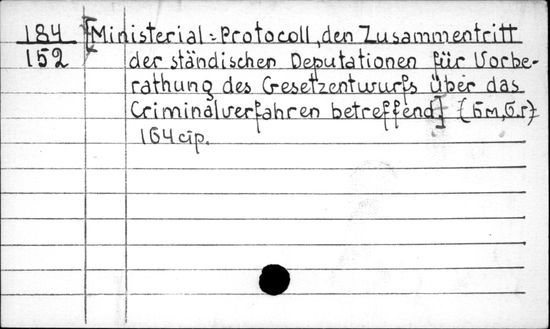 184 [Ministerial-Protocoll, den Zusammentritt
152 der ständischen Deputationen für Vorbe-
rathung des Gesetzentwurfs über das
Criminalverfahren betreffend]
164